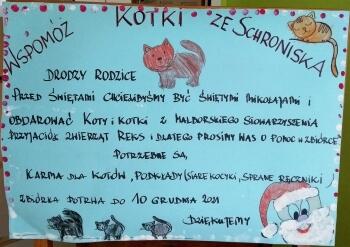 WSPOMÓŻ KOTKI ZE SCHRONISKA
DRODZY RODZICE
PRZED ŚWIĘTAMI CHCIELIBYŚMY BYĆ ŚWIĘTYMI MIKOŁAJAMI I
OBDAROWAĆ KOTY I KOTKI Z MALBORSKIEGO STOWARZYSZENIA
PRZYJACIÓŁ ZWIERZĄT REKS I DLATEGO PROSIMY WAS O POMOC W ZBIÓRCE
POTRZEBNE SĄ,
KARMA DLA KOTÓW, PODKŁADY (STARE KOCYKI, SPRANE RĘCZNIKI)
ZBIÓRKA POTRWA DO 10 GRUDNIA 2021
DZIĘKUJEMY